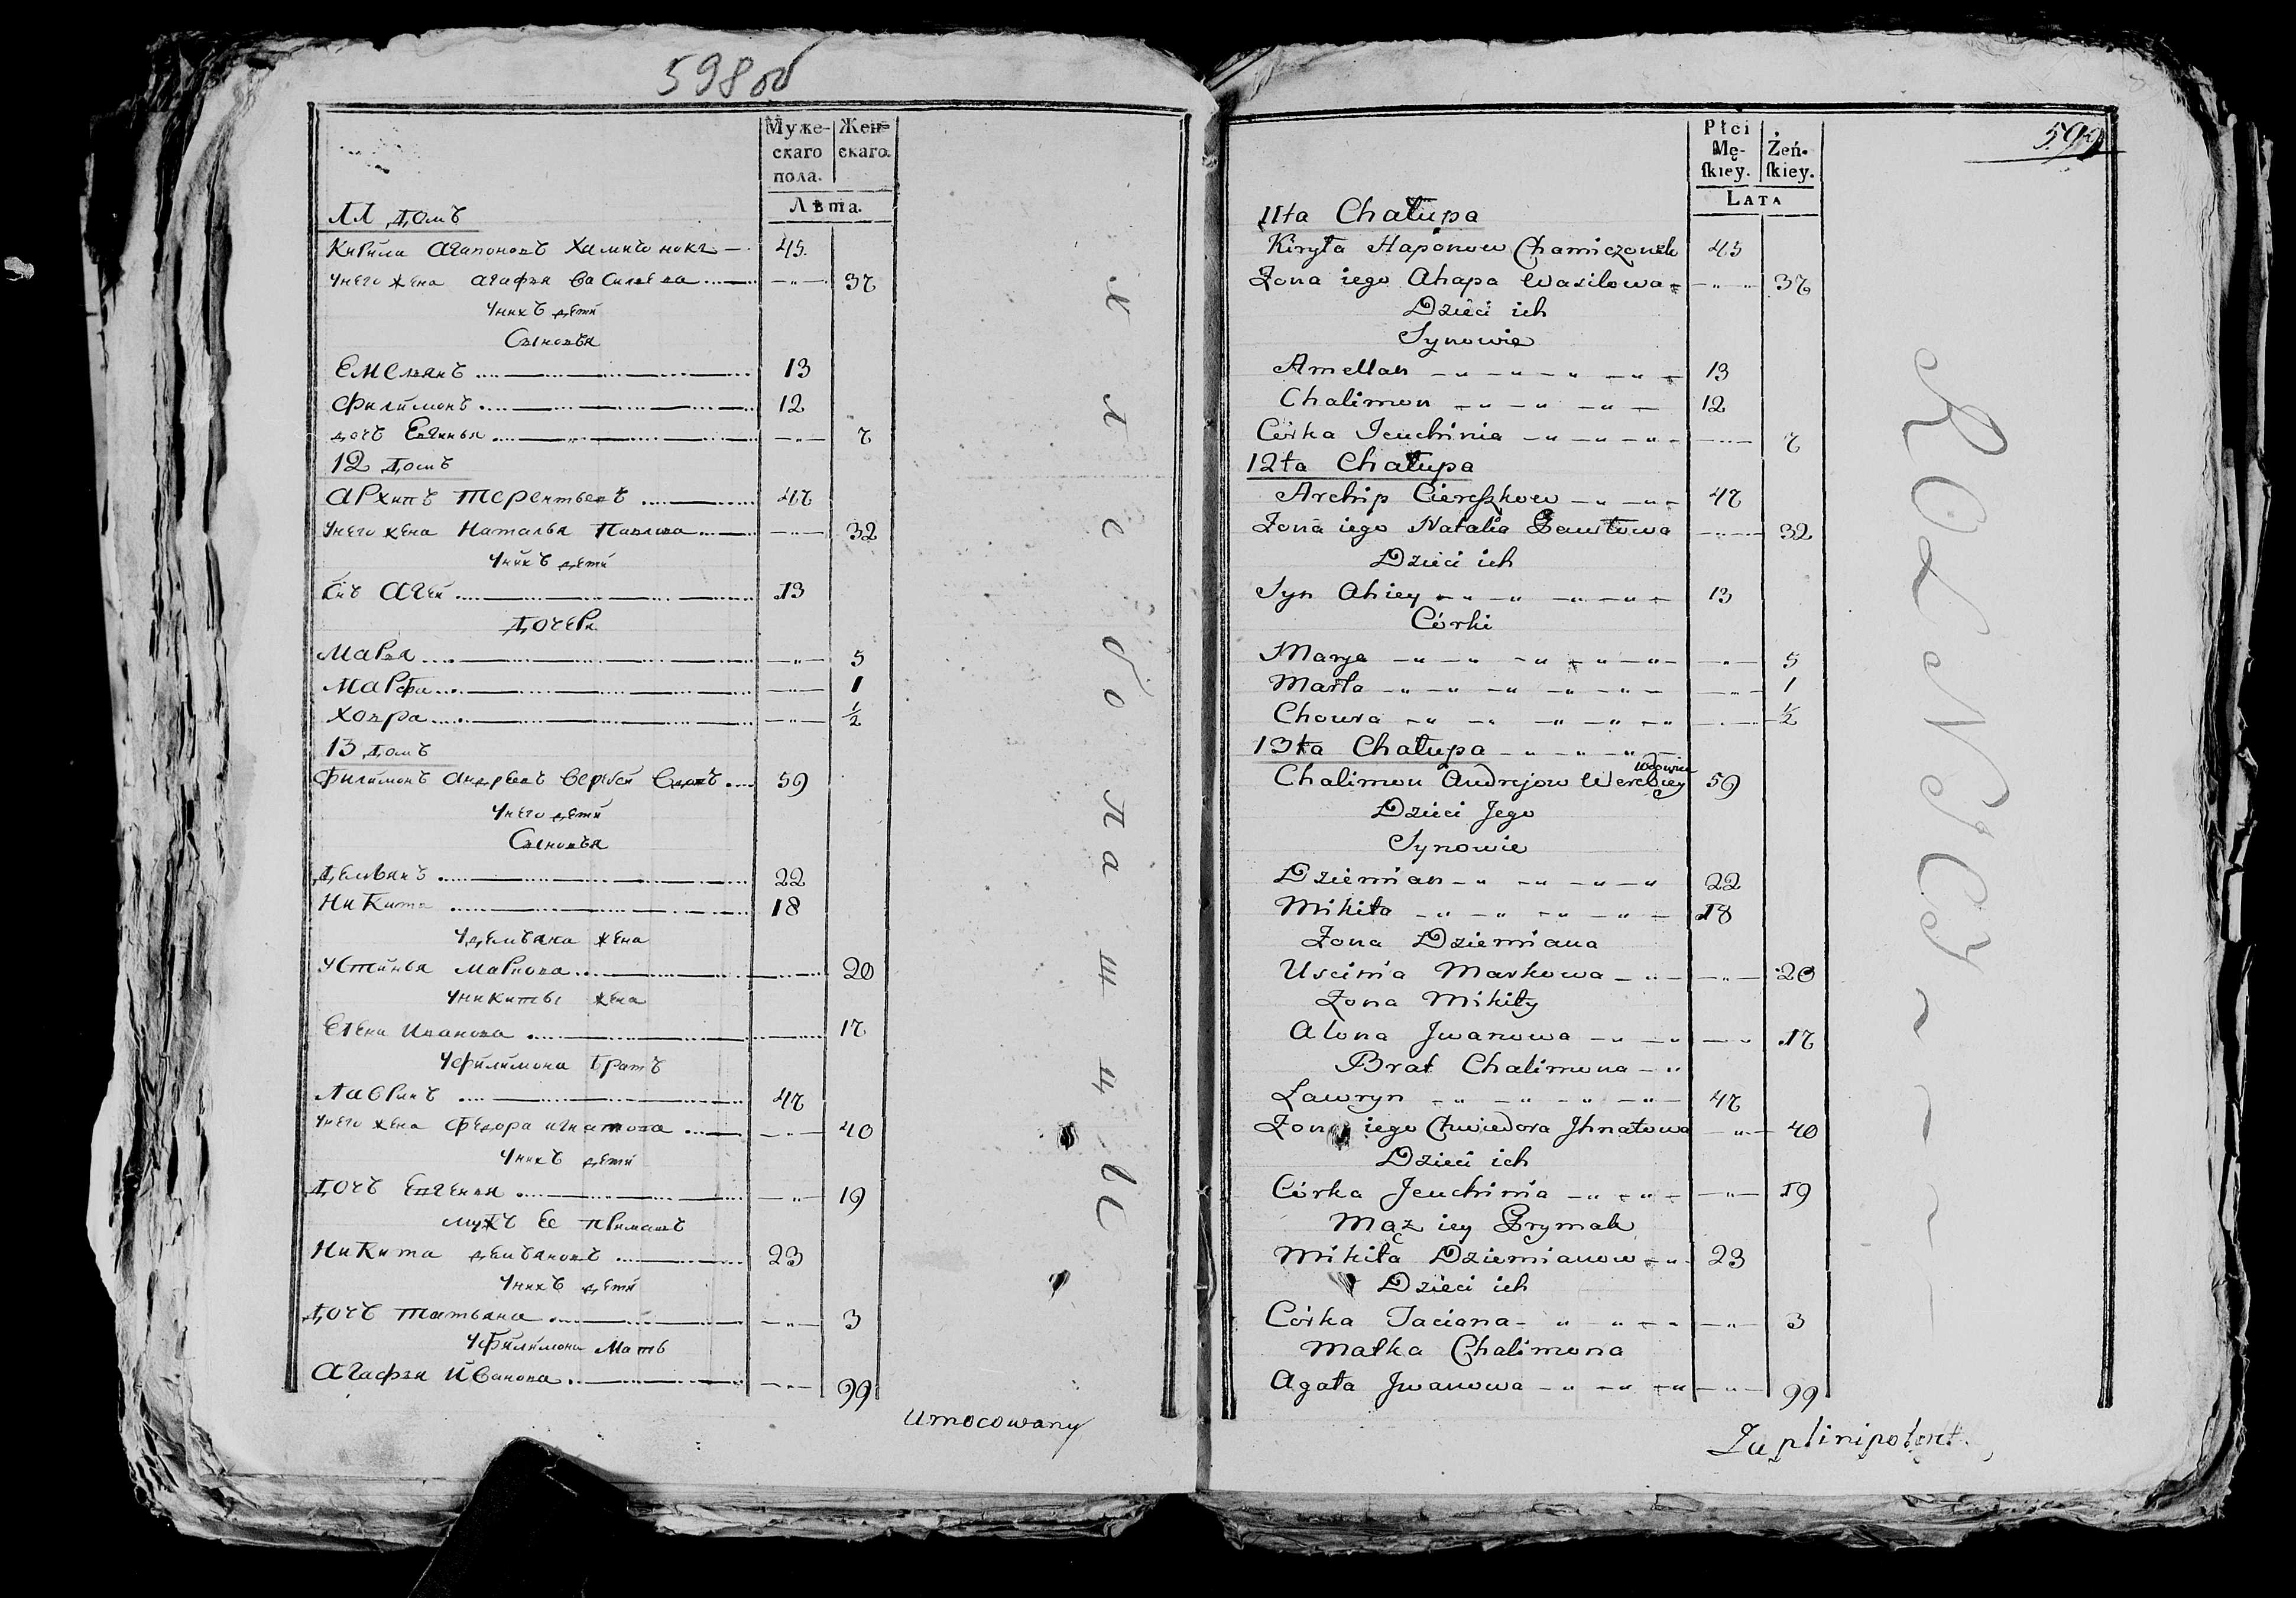 598 об
Муже- Жен=
скаго скаго.
пола.
Лѣта.
11 домъ
Кирила Агапоновъ Хамичонокъ 45.
унего жена Агафья Васильева 37
унихъ дети
Сыновья
Емельянъ 13
Филимонъ 12
дочъ Евгинья 7
12 домъ
Архипъ Терентьевъ 47
унего жена Наталья Павлова 32
унихъ дети
Сiнъ Агей 13
Дочери
Марья 5
Марфа 1
Ховра 1/2
13 домъ
Филимонъ Андреевъ Веребей Вдовъ 59
унего дети
Сыновья
Демьянъ 22
Никита 18
удемьяна жена
Устинья Маркова 20
уникиты жена
Елена Иванова 17
уфилимона братъ
Лавринъ 47
унего жена Федора игнатова 40
унихъ дети
Дочъ Евгенья 19
мужъ ее примакъ
Никита демьяновъ 23
унихъ дети
Дочъ татьяна 3
уфилимона мать
Агафья Иванова 99
хлебопашцъ
Umocowany
599
Płci
Mę- Żeń-
ſkiey. ſkiey.
LATA
11ta Chałupa
Kiryła Haponow Chamiczonek 45
Zona iego Ahapa Wasilowa 37
Dzieci ich
Synowie
Amellan 13
Chalimon 12
Córka Jeuchinia 7
12ta Chałupa
Archip Ciereszkow 47
Zona iego Natalia Pawłowa 32
Dzieci ich
Syn Ahiey 13
Córki
Marya 5
Marta 1
Chowra 1/2
13ta Chałupa
wdowiec
Chalimon Andrejow Werebiey 59
Dzieci Jego
Synowie
Dziemian 22
Mikita 18
Zona Dziemiana
Uscinia Markowa 20
Zona Mikity
Alona Jwanowa 17
Brat Chalimona
Ławryn 47
Zona iego Chwiedora Jhnatowa 40
Dzieci ich
Córka Jeuchinia 19
Mąz iey Prymak
Mikita Dziemianow 23
Dzieci ich
Córka Taciana 3
Matka Chalimona
Agata Jwanowa 99
ROLNICY
Za plinipotent.